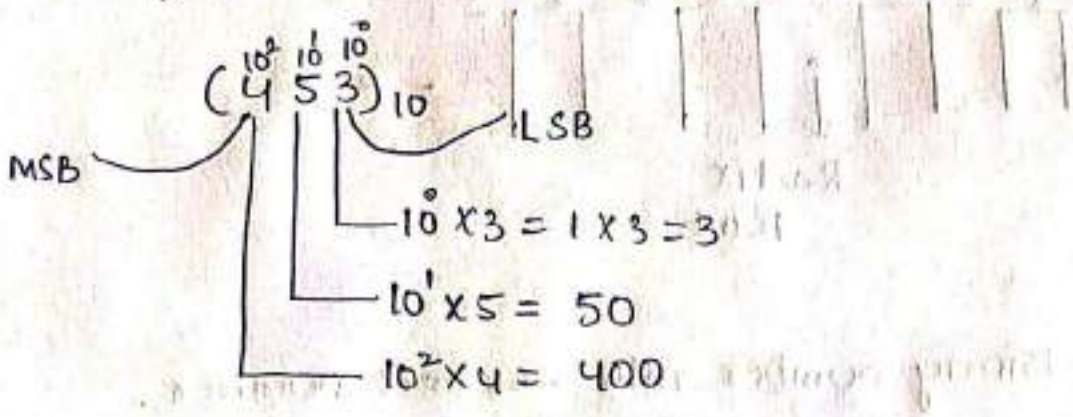 10² 10¹ 10⁰
(4 5 3)10
MSB
LSB
10⁰ × 3 = 1 × 3 = 3
10¹ × 5 = 50
10² × 4 = 400